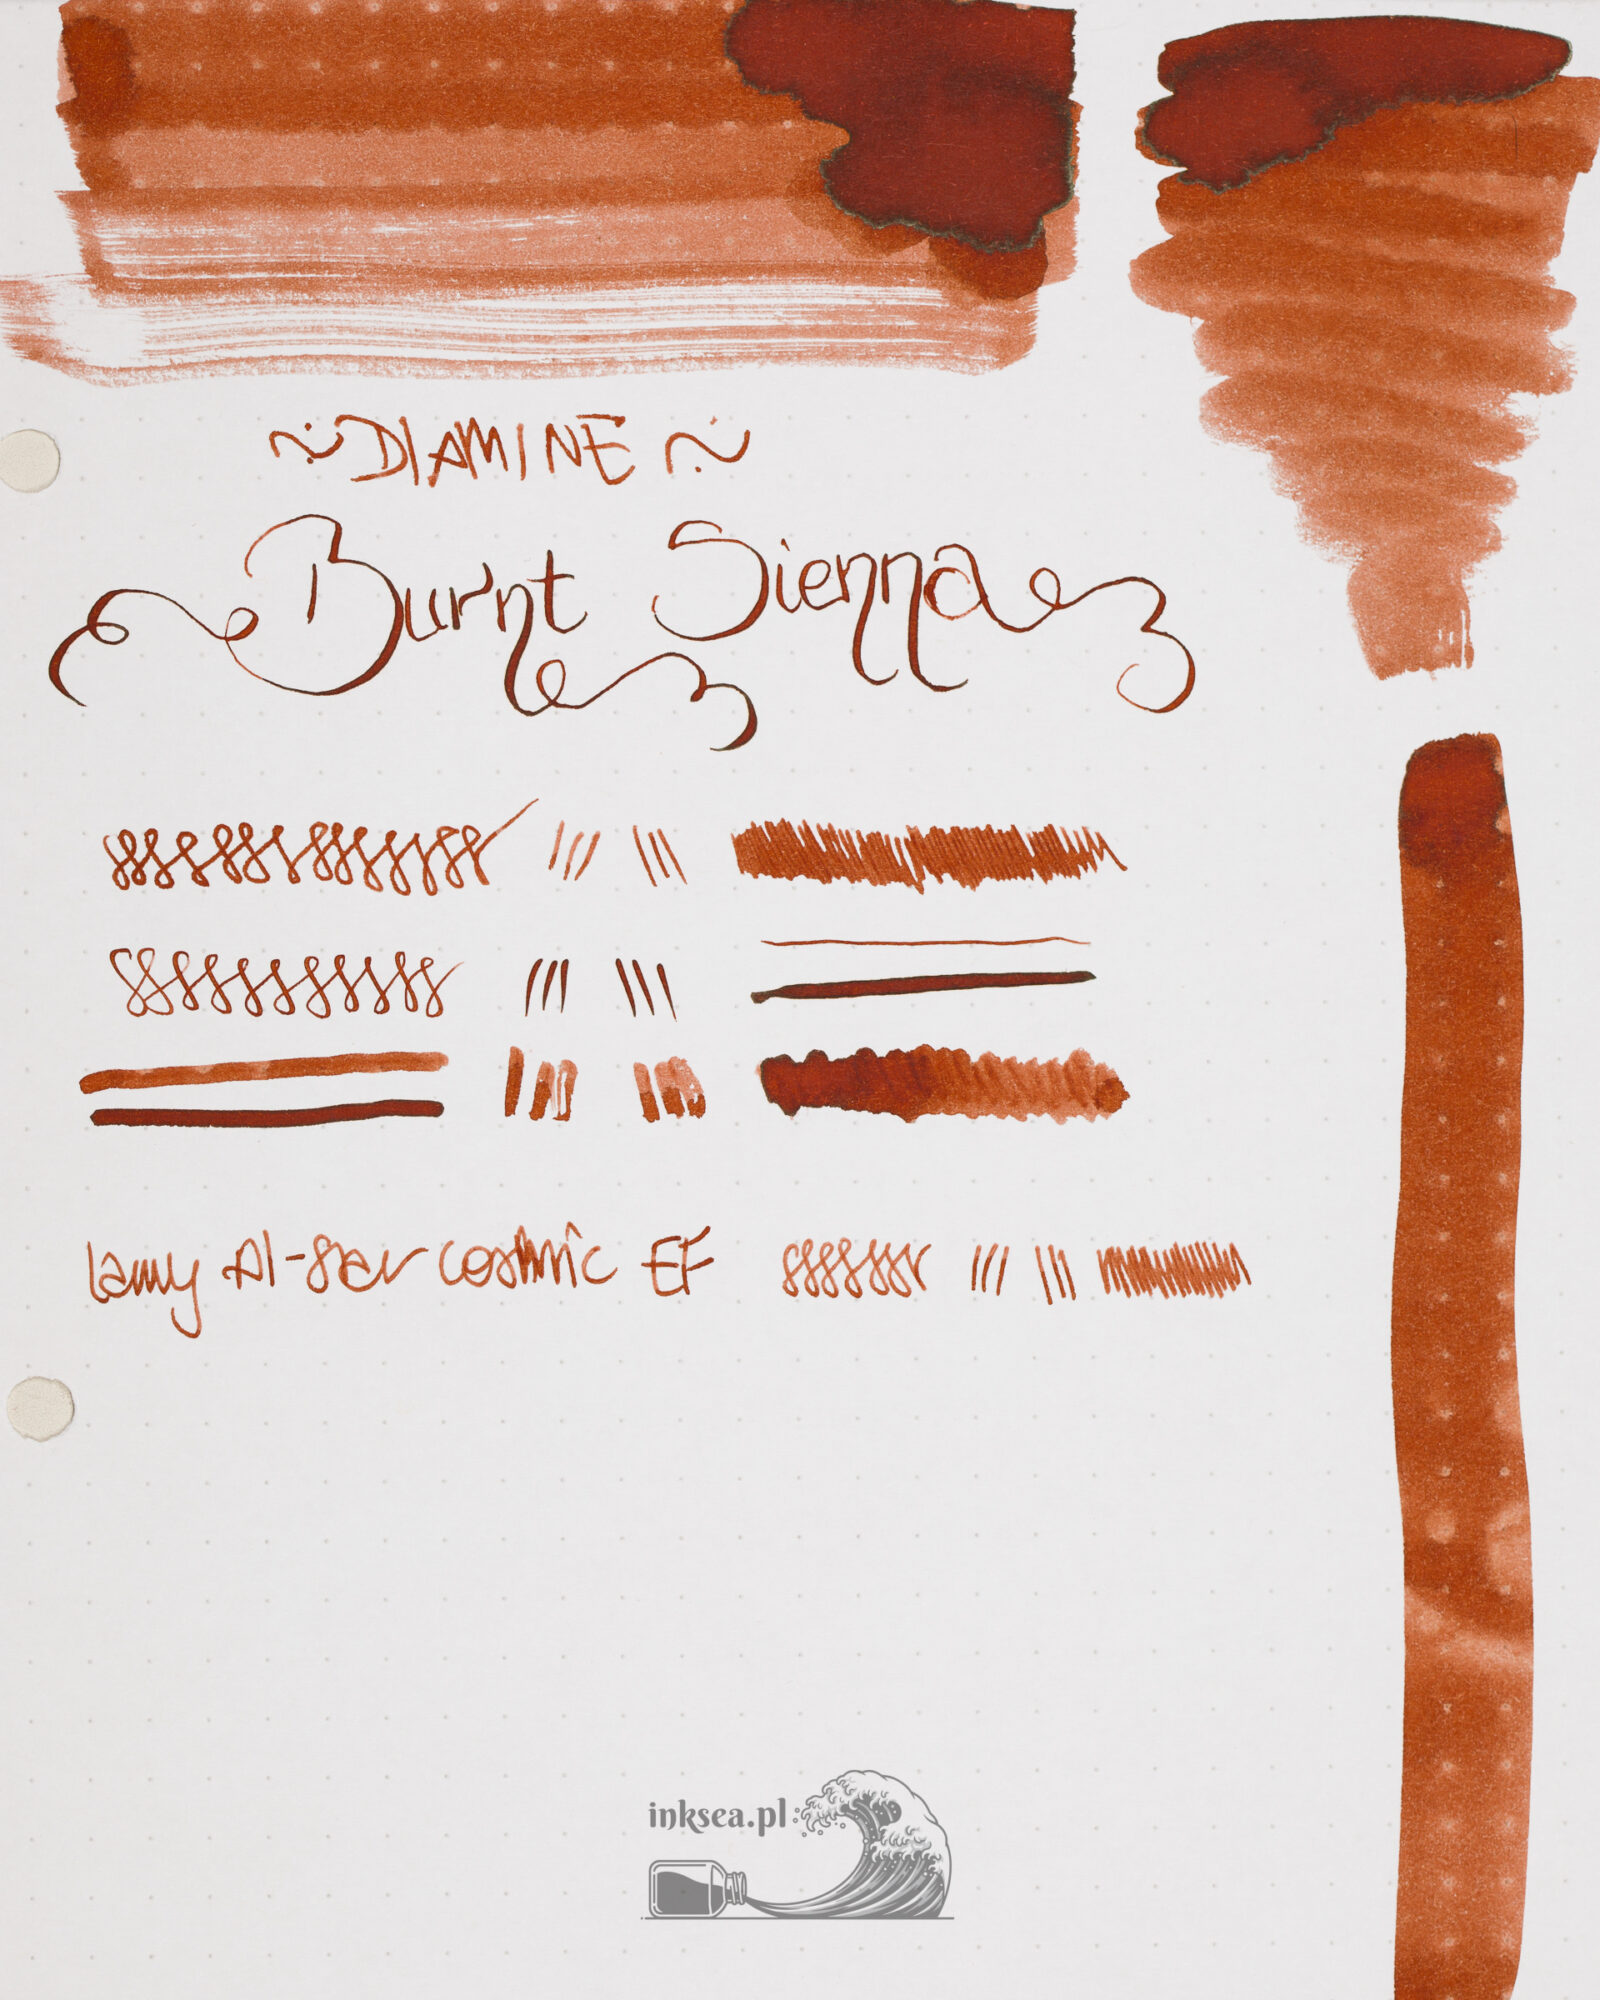 ~DIAMINE~
Burnt Sienna
Lamy Al-Star cosmic EF
inksea.pl